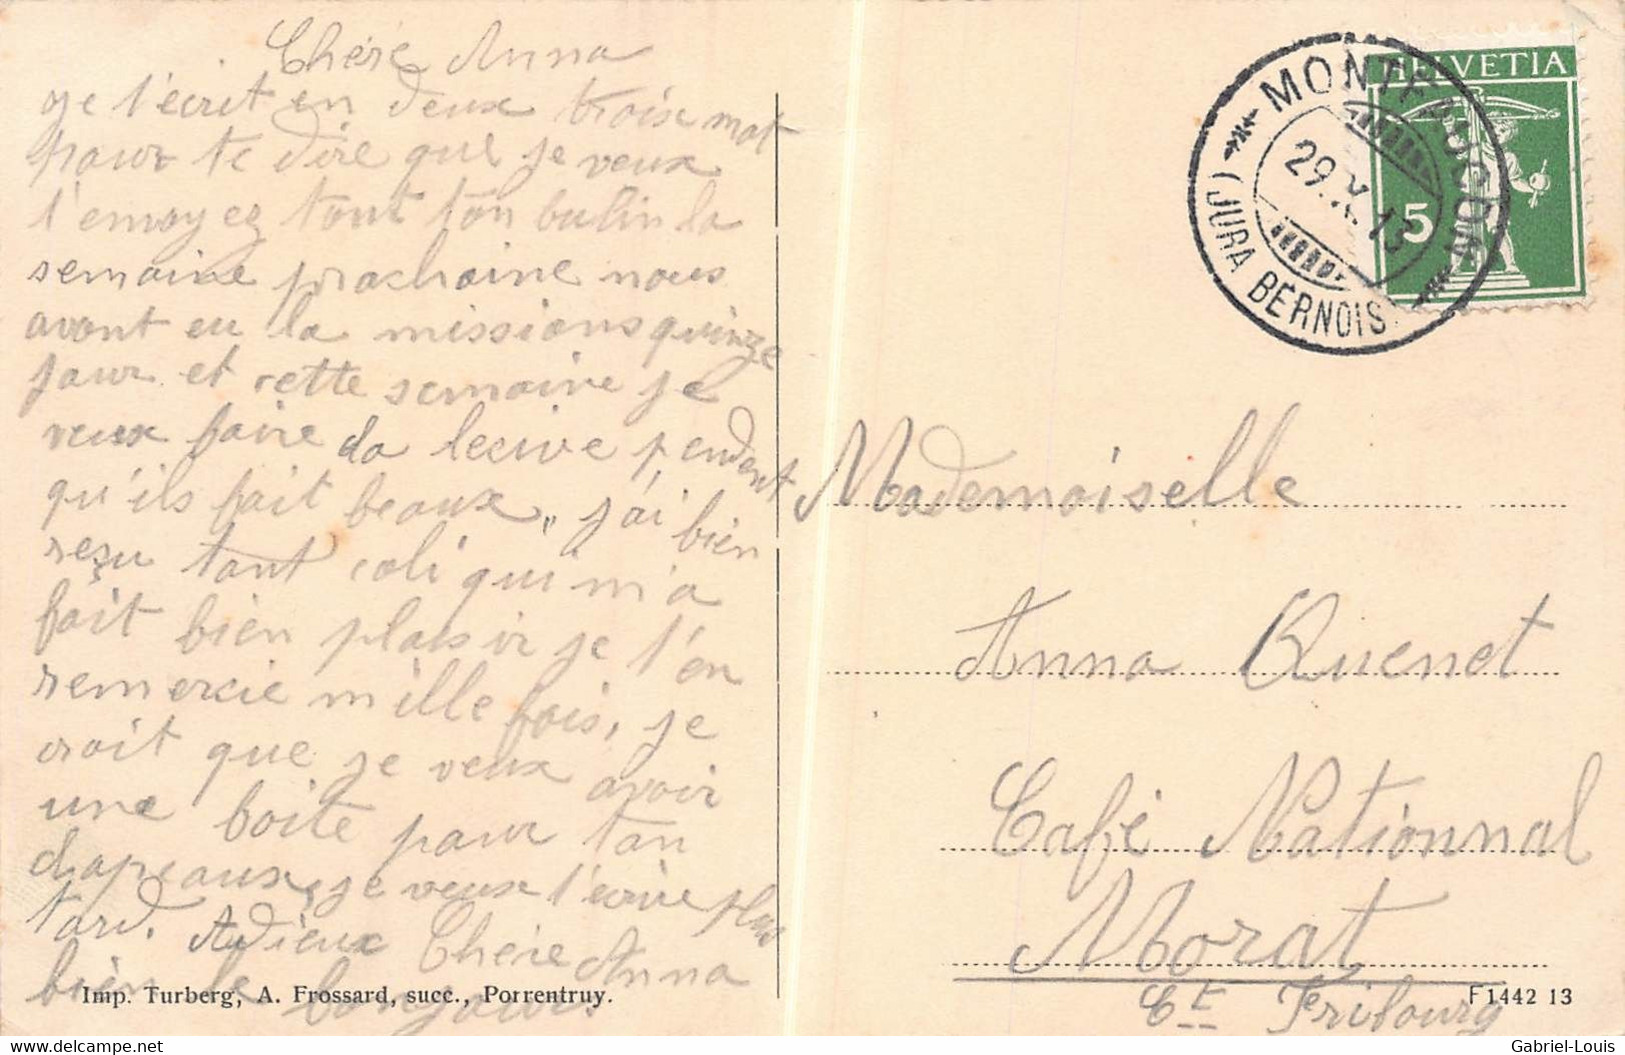 Chère Anna
je t'écrit en deux trois mot
pour te dire que je veux
t'envoyez tout ton butin la
semaine prochaine nous
avont eu la missions quinze
jour et cette semaine je
veux faire la lecive pendent
qu'ils fait beaux, j'ai bien
reçu tont coli qui m'a
fait bien plaisir je t'en
remercie mille fois, je
croit que je veux avoir
une boite pour ton
chapeaux, je veux t'écrire plus
tard. Adieux Chère Anna
bien le bonjours
Imp. Turberg, A. Frossard, succ., Porrentruy.
HELVETIA
5
MONTFAUCON
29.X.13
(JURA BERNOIS)
Mademoiselle
Anna Quenet
Café Nationnal
Morat
Ct Fribourg
F1442 13
delcampe.net
Gabriel-Louis